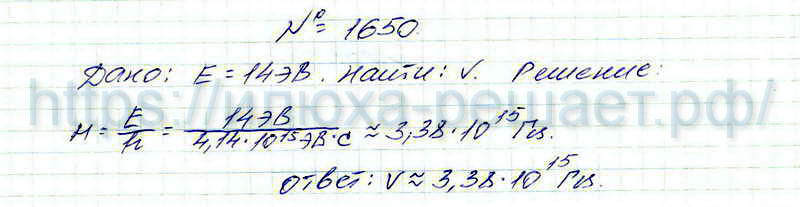 № 1650
Дано: E = 14 эВ. Найти: ν. Решение:
https://илюха-решает.рф/
И = E/h = 14 эВ / 4,14·10¹⁵ эВ·с ≈ 3,38·10¹⁵ Гц.
Ответ: ν ≈ 3,38·10¹⁵ Гц.